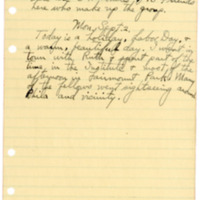 here who make up the group.
Mon. Sept 2.
Today is a holiday, Labor Day, &
a warm, beautiful day. I went in
town with Ruth & spent part of the
time in the Institute & most of the
afternoon in Fairmount Park. Many
of the fellows went sightseeing around
Phila and vicinity.